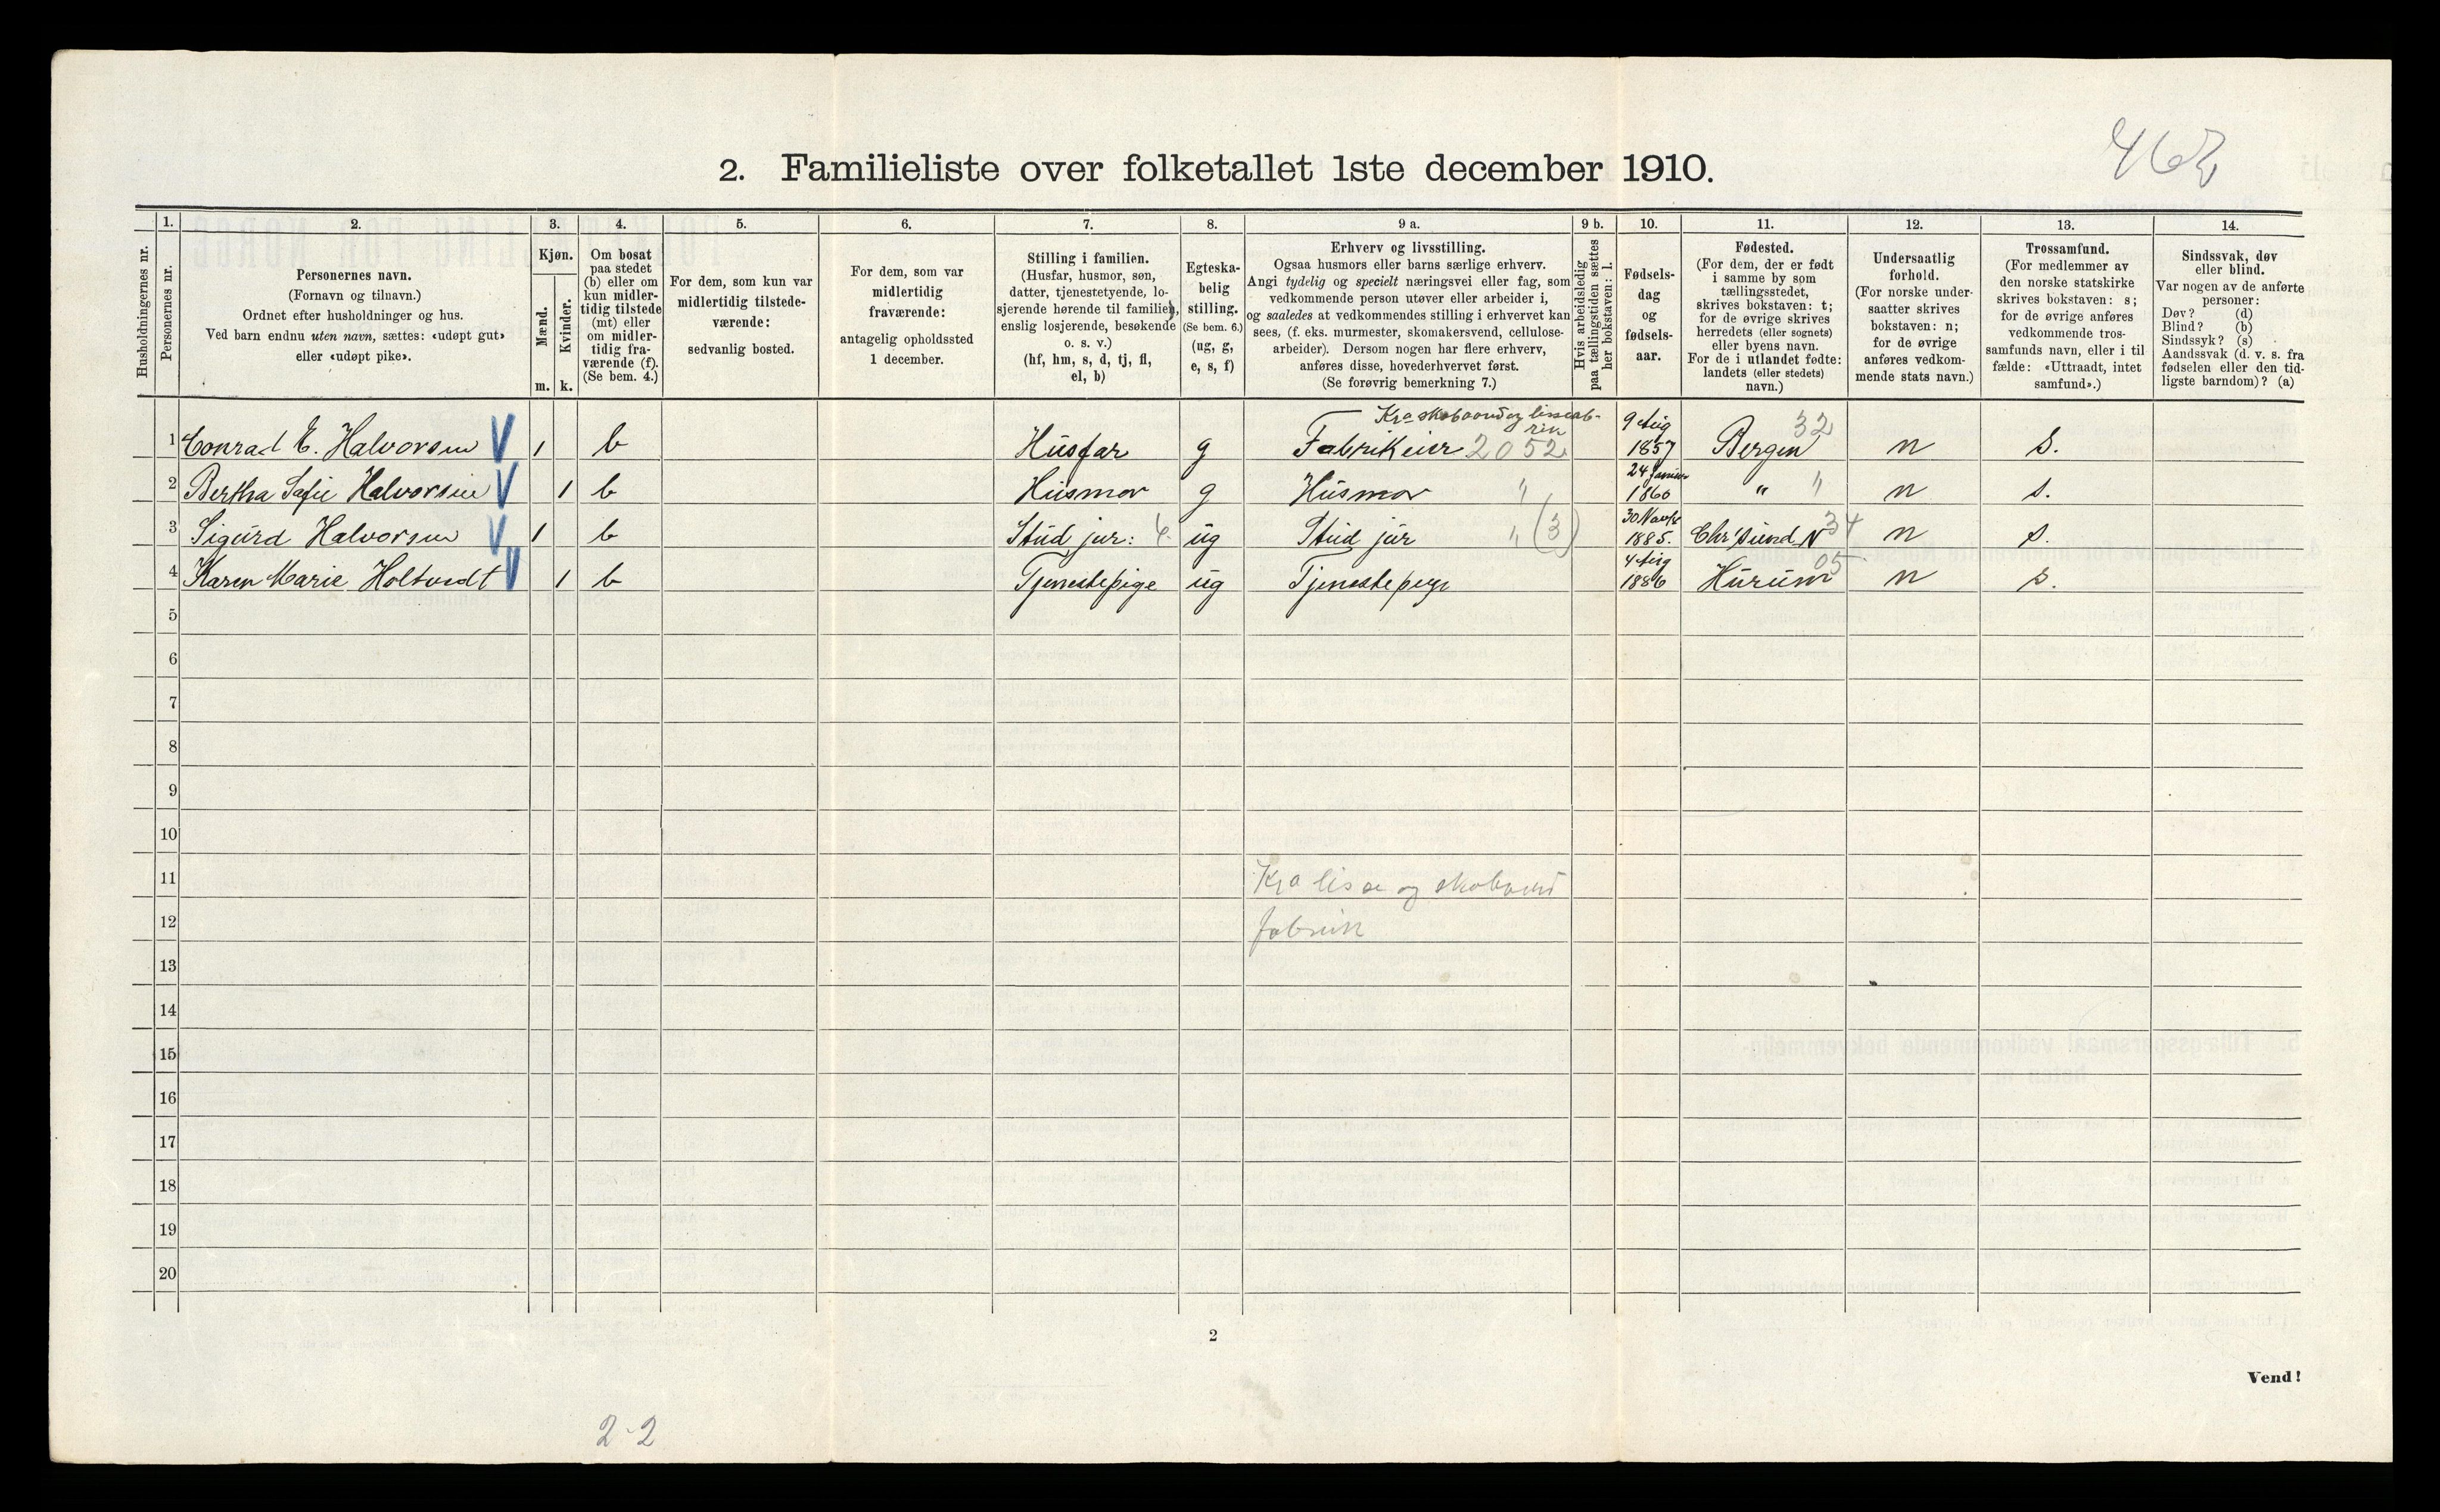 462
2. Familieliste over folketallet 1ste december 1910.
Husholdningernes nr.
1.
Personernes nr.
2.
Personernes navn.
(Fornavn og tilnavn.)
Ordnet efter husholdninger og hus.
Ved barn endnu uten navn, sættes: «udøpt gut»
eller «udøpt pike».
3.
Kjøn.
Mænd.
Kvinder.
m. k.
4.
Om bosat
paa stedet
(b) eller om
kun midler-
tidig tilstede
(mt) eller
om midler-
tidig fra-
værende (f).
(Se bem. 4.)
5.
For dem, som kun var
midlertidig tilstede-
værende:
sedvanlig bosted.
6.
For dem, som var
midlertidig
fraværende:
antagelig opholdssted
1 december.
7.
Stilling i familien.
(Husfar, husmor, søn,
datter, tjenestetyende, lo-
sjerende hørende til familien,
enslig losjerende, besøkende
o. s. v.)
(hf, hm, s, d, tj, fl,
el, b)
8.
Egteska-
belig
stilling.
(Se bem. 6.)
(ug, g,
e, s, f)
9 a.
Erhverv og livsstilling.
Ogsaa husmors eller barns særlige erhverv.
Angi tydelig og specielt næringsvei eller fag, som
vedkommende person utøver eller arbeider i,
og saaledes at vedkommendes stilling i erhvervet kan
sees, (f. eks. murmester, skomakersvend, cellulose-
arbeider). Dersom nogen har flere erhverv,
anføres disse, hovederhvervet først.
(Se forøvrig bemerkning 7.)
9 b.
Hvis arbeidsledig
paa tællingstiden sættes
her bokstaven: l.
10.
Fødsels-
dag
og
fødsels-
aar.
11.
Fødested.
(For dem, der er født
i samme by som
tællingsstedet,
skrives bokstaven: t;
for de øvrige skrives
herredets (eller sognets)
eller byens navn.
For de i utlandet fødte:
landets (eller stedets)
navn.)
12.
Undersaatlig
forhold.
(For norske under-
saatter skrives
bokstaven: n;
for de øvrige
anføres vedkom-
mende stats navn.)
13.
Trossamfund.
(For medlemmer av
den norske statskirke
skrives bokstaven: s;
for de øvrige anføres
vedkommende tros-
samfunds navn, eller i til-
fælde: «Uttraadt, intet
samfund».)
14.
Sindssvak, døv
eller blind.
Var nogen av de anførte
personer:
Døv? (d)
Blind? (b)
Sindssyk? (s)
Aandssvak (d. v. s. fra
fødselen eller den tid-
ligste barndom)? (a)
Kra skobaand og lissefab-
rik
1 Conrad E. Halvorsen V 1 b Husfar g Fabrikeier 2052 9 Aug 1857 Bergen 32 n s.
2 Bertha Sofie Halvorsen V 1 b Husmor g Husmor " 24 Januar 1860 " " n s.
3 Sigurd Halvorsen V 1 b Stud jur: 6. ug Stud jur " (3) 30 Novbr 1885. Chr'sund N 34 n s.
4 Karen Marie Holtvedt V 1 b Tjenestepige ug Tjenestepige 4 Aug 1886 Hurum 05 n s.
5
6
7
8
9
10
11 Kra lisse og skobaand
12 fabrik
13
14
15
16
17
18
19
20
2
Vend!
2-2